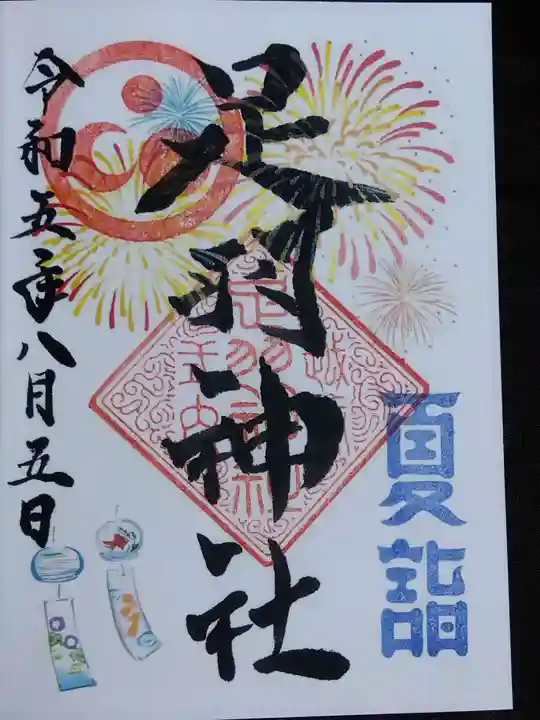 夏詣
足羽神社
令和五年八月五日